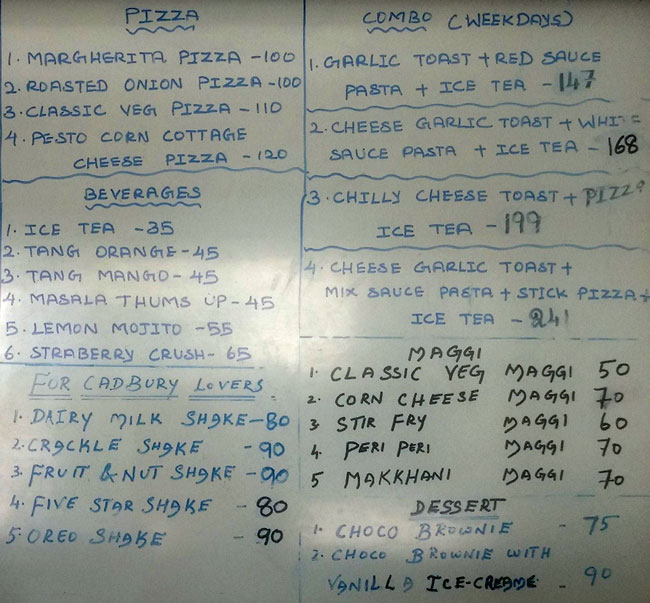 PIZZA
1. MARGHERITA PIZZA - 100
2. ROASTED ONION PIZZA - 100
3. CLASSIC VEG PIZZA - 110
4. PESTO CORN COTTAGE
CHEESE PIZZA - 120
BEVERAGES
1. ICE TEA - 35
2. TANG ORANGE - 45
3. TANG MANGO - 45
4. MASALA THUMS UP - 45
5. LEMON MOJITO - 55
6. STRABERRY CRUSH - 65
FOR CADBURY LOVERS
1. DAIRY MILK SHAKE - 80
2. CRACKLE SHAKE - 90
3. FRUIT & NUT SHAKE - 90
4. FIVE STAR SHAKE - 80
5. OREO SHAKE - 90
COMBO (WEEKDAYS)
1. GARLIC TOAST + RED SAUCE
PASTA + ICE TEA - 147
2. CHEESE GARLIC TOAST + WHITE
SAUCE PASTA + ICE TEA - 168
3. CHILLY CHEESE TOAST + PIZZA
ICE TEA - 199
4. CHEESE GARLIC TOAST +
MIX SAUCE PASTA + STICK PIZZA +
ICE TEA - 241
MAGGI
1. CLASSIC VEG MAGGI 50
2. CORN CHEESE MAGGI 70
3 STIR FRY MAGGI 60
4. PERI PERI MAGGI 70
5 MAKKHANI MAGGI 70
DESSERT
1. CHOCO BROWNIE - 75
2. CHOCO BROWNIE WITH
VANILLA ICE-CREAME - 90